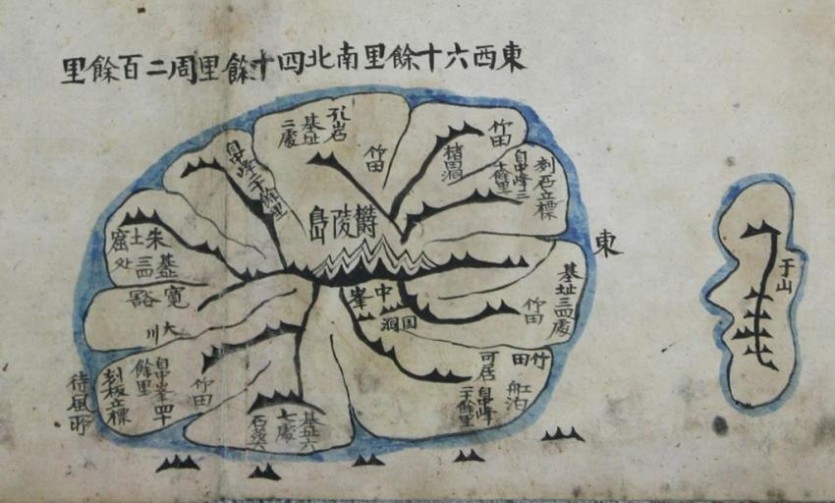 東西六十餘里南北四十餘里周二百餘里
孔岩
基址
二處
竹田
竹田
楮田洞
自中峰三
十餘里
刻石立標
自中峰二十餘里
欝陵島
東
朱土窟
基址
三四
處
寬
豁
大川
中峯
基址三四處
竹田
于山
竹田
可居
舡泊
自中峰
二十餘里
自中峯四十
餘里
刻板立標
竹田
待風所
基址六
七處
石葬